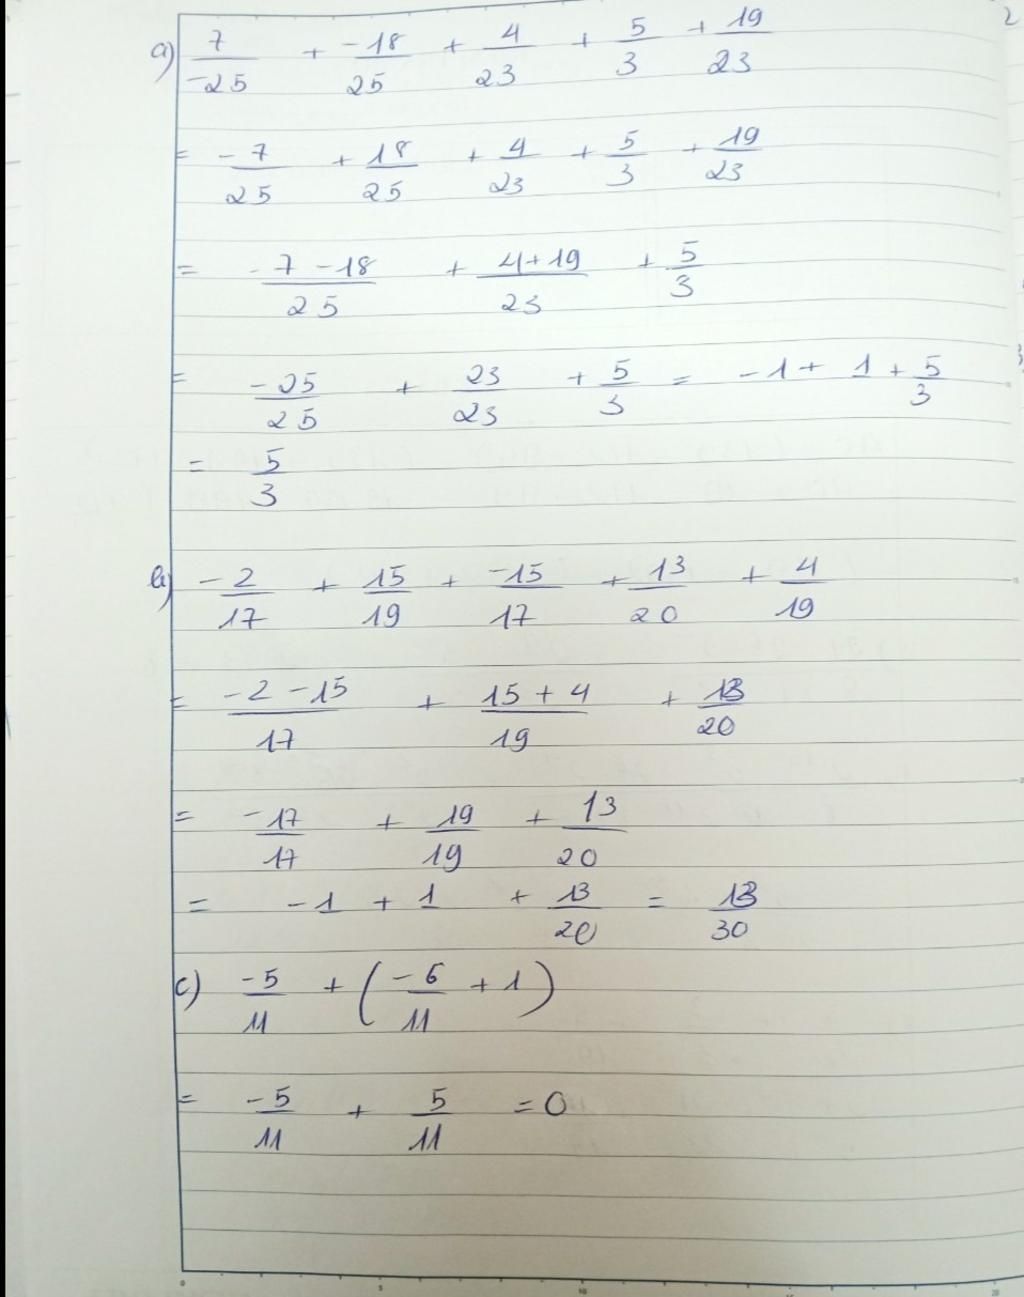 a) 7/-25 + -18/25 + 4/23 + 5/3 + 19/23
= -7/25 + 18/25 + 4/23 + 5/3 + 19/23
= -7-18/25 + 4+19/23 + 5/3
= -25/25 + 23/23 + 5/3 = -1 + 1 + 5/3
= 5/3
b) -2/17 + 15/19 + -15/17 + 13/20 + 4/19
= -2-15/17 + 15+4/19 + 13/20
= -17/17 + 19/19 + 13/20
= -1 + 1 + 13/20 = 13/30
c) -5/11 + (-6/11 + 1)
= -5/11 + 5/11 = 0